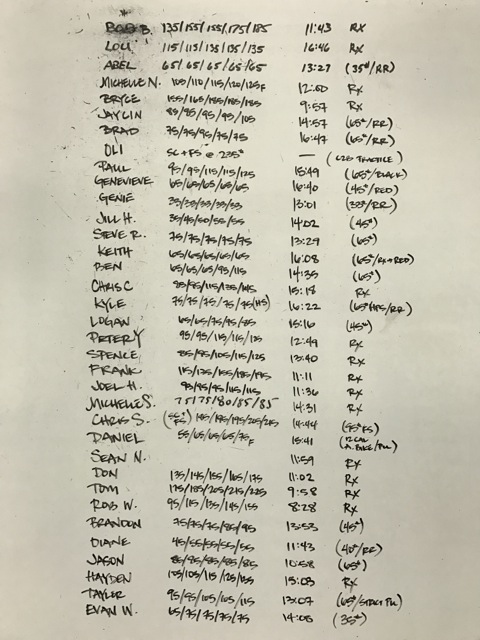 BOB B. 135/155/155/175/185 11:43 RX
LOU 115/115/135/135/135 16:46 RX
ABEL 65/65/65/65/65 13:27 (35#/RR)
MICHELLE N. 105/110/115/120/125F 12:00 RX
BRYCE 155/165/185/185/185 9:57 RX
JAYLIN 85/95/95/95/105 14:57 (65#/RR)
BRAD 75/75/95/75/75 16:47 (65#/RR)
OLI SC+FS @ 235# — (C2B PRACTICE)
PAUL 95/95/115/115/125 15:49 (65#/BLACK)
GENEVIEVE 65/65/65/65/65 16:40 (45#/RED)
GENIE 35/35/35/35/35 13:01 (35#/RR)
JILL H. 35/45/50/55/55 14:02 (45#)
STEVE R. 75/75/75/75/75 13:29 (65#)
KEITH 65/65/65/65/65 16:08 (65#/RR+RED)
BEN 65/65/65/95/115 14:35 (65#)
CHRIS C 85/95/115/135/145 15:18 RX
KYLE 75/75/75/75/75(HS) 16:22 (65#HPS/RR)
LOGAN 65/65/75/75/85 15:16 (45#)
PETER Y 95/95/115/115/125 12:49 RX
SPENCE 85/95/105/115/125 13:40 RX
FRANK 115/135/155/185/195 11:11 RX
JOEL H. 95/95/95/115/115 11:36 RX
MICHELLE S. 75/75/80/85/85 14:31 RX
CHRIS S. (SC+FS) 145/195/195/205/215 14:44 (95#FS)
DANIEL 55/65/65/65/75F 15:41 (12 CAL A. BIKE/PU)
SEAN N. 11:59 RX
DON 135/145/155/165/175 11:02 RX
TOM 175/185/205/215/225 9:58 RX
ROB W. 95/115/135/145/155 8:28 RX
BRANDON 75/75/75/85/95 13:53 (45#)
DIANE 45/55/55/55/55 11:43 (40#/RR)
JASON 85/85/85/85/85 10:58 (65#)
HAYDEN 105/105/115/125/135 15:03 RX
TAYLER 95/95/105/105/115 13:07 (65#/STRICT PU)
EVAN W. 65/75/75/75/75 14:06 (35#)